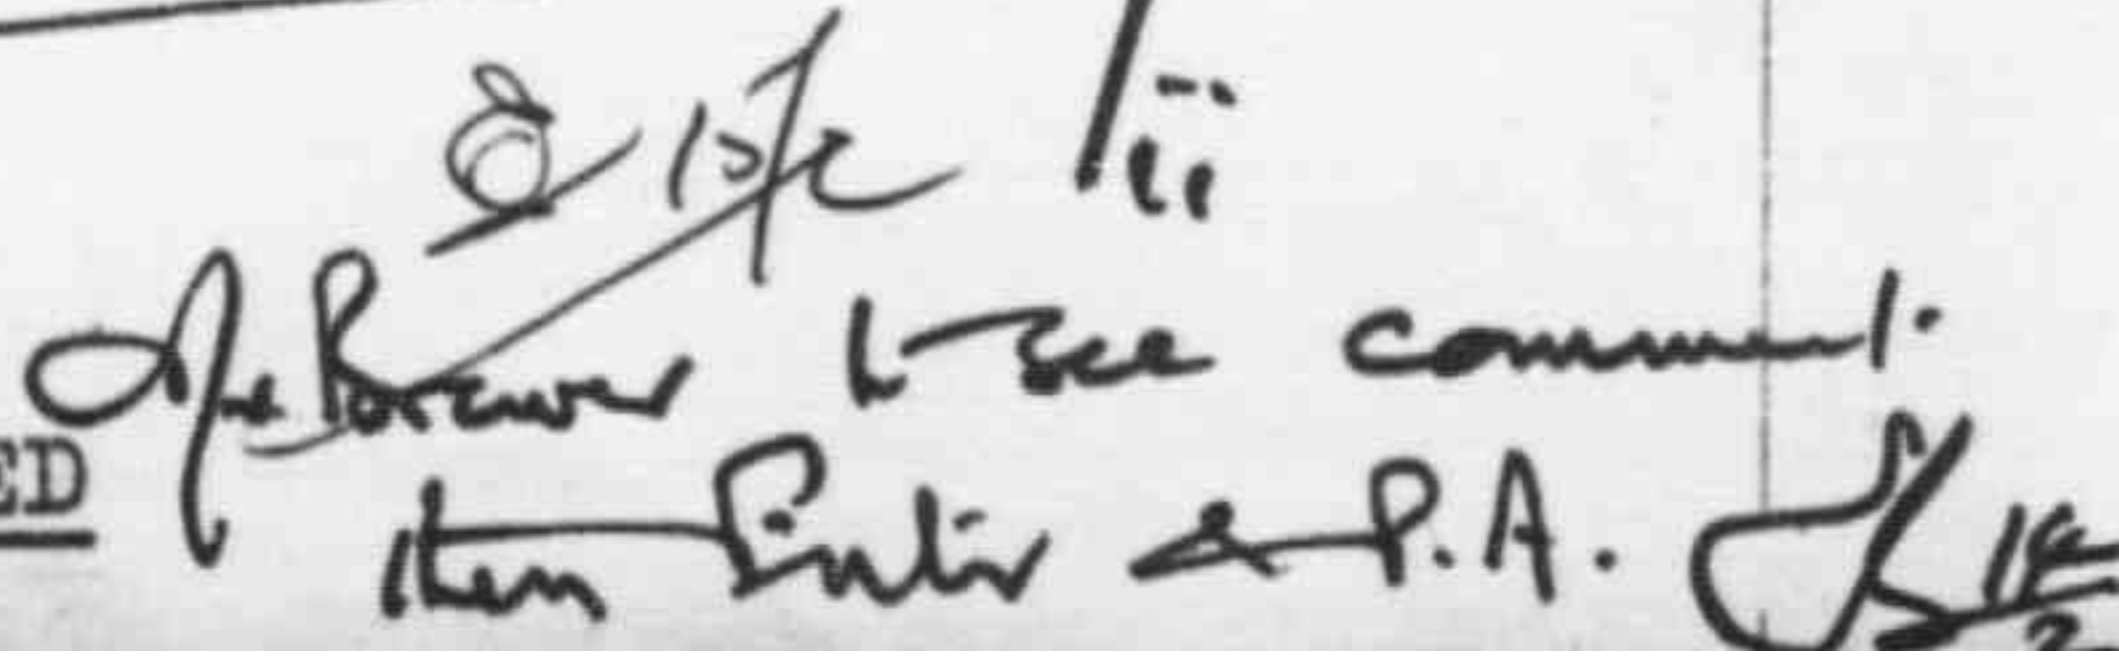 15/2
Mr Brewer to see comment.
ED
then Enter & P.A.